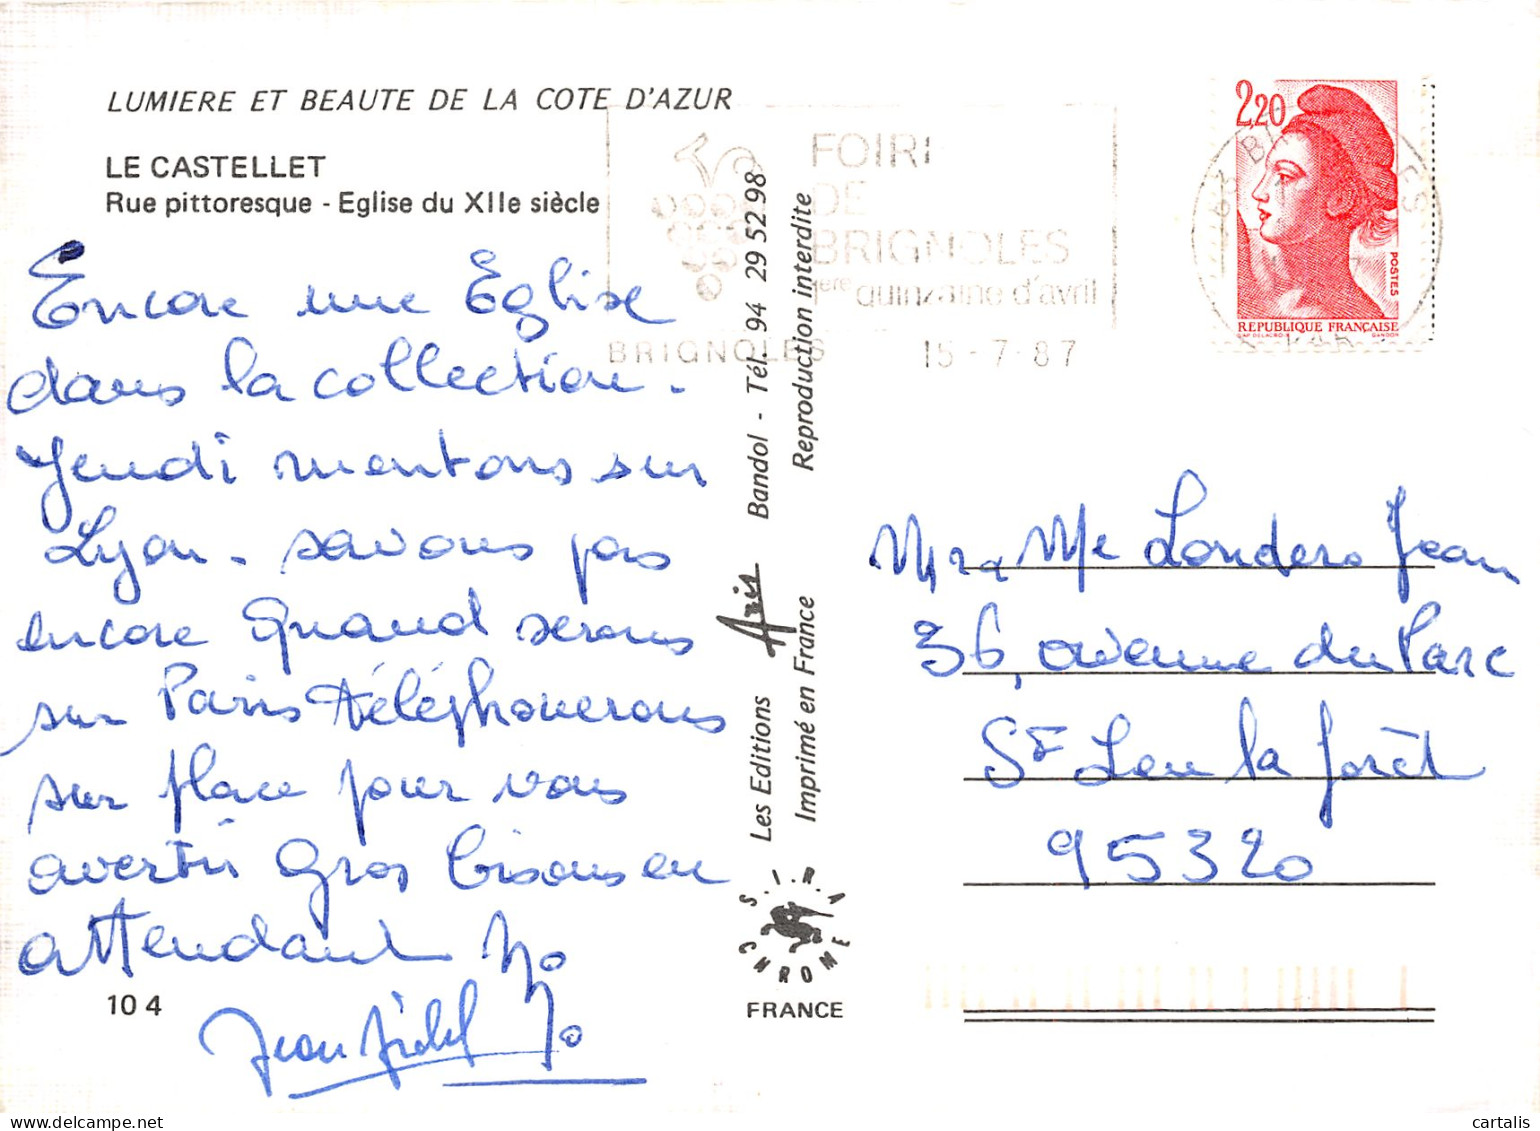 LUMIERE ET BEAUTE DE LA COTE D'AZUR
LE CASTELLET
Rue pittoresque - Eglise du XIIe siècle
Encore une Eglise
dans la collection.
Jeudi montons sur
Lyon. savons pas
encore quand serons
sur Paris téléphonerons
sur place pour vous
avertir Gros bisous en
attendant Yo
Jean Michel Yo
10 4
Les Editions Aris Bandol - Tél. 94 29 52 98
Imprimé en France Reproduction interdite
S.I.R.A
CHROME
FRANCE
FOIRE
DE
BRIGNOLES
1ère quinzaine d'avril
BRIGNOLES 15-7-87
2,20
POSTES
REPUBLIQUE FRANÇAISE
Mr & Me Londero Jean
36, avenue du Parc
St Leu la forêt
95320
cartalis
cartalis.com